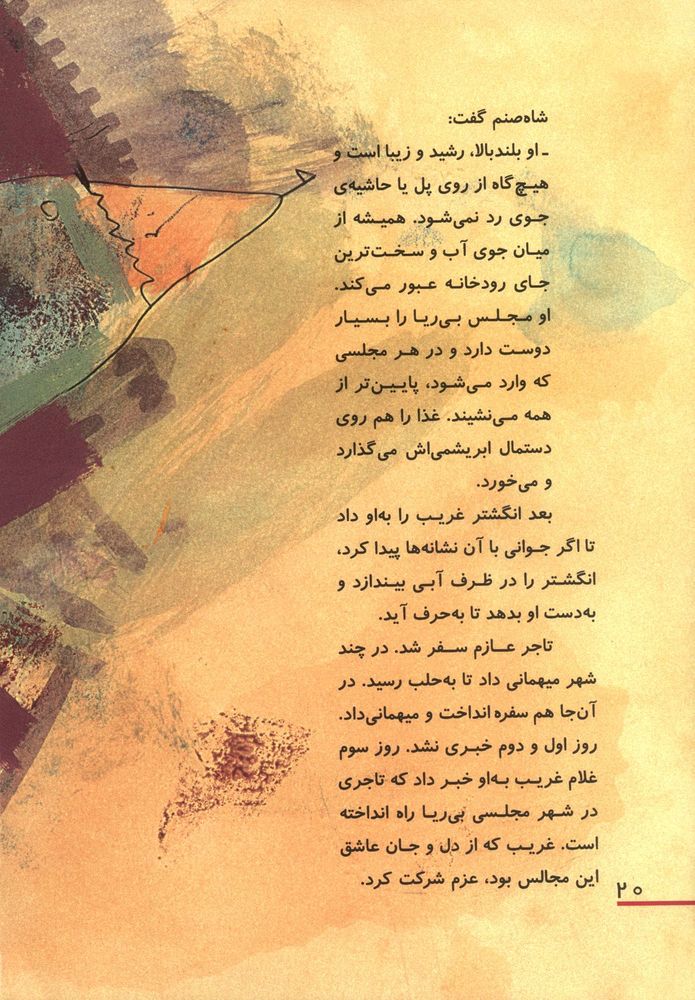 شاه‌صنم گفت:
ـ او بلندبالا، رشید و زیبا است و
هیچ‌گاه از روی پل یا حاشیه‌ی
جوی رد نمی‌شود. همیشه از
میان جوی آب و سخت‌ترین
جای رودخانه عبور می‌کند.
او مجلس بی‌ریا را بسیار
دوست دارد و در هر مجلسی
که وارد می‌شود، پایین‌تر از
همه می‌نشیند. غذا را هم روی
دستمال ابریشمی‌اش می‌گذارد
و می‌خورد.
بعد انگشتر غریب را به‌او داد
تا اگر جوانی با آن نشانه‌ها پیدا کرد،
انگشتر را در ظرف آبی بیندازد و
به‌دست او بدهد تا به‌حرف آید.
تاجر عازم سفر شد. در چند
شهر میهمانی داد تا به‌حلب رسید. در
آن‌جا هم سفره انداخت و میهمانی‌داد.
روز اول و دوم خبری نشد. روز سوم
غلام غریب به‌او خبر داد که تاجری
در شهر مجلسی بی‌ریا راه انداخته
است. غریب که از دل و جان عاشق
این مجالس بود، عزم شرکت کرد.
۲۰